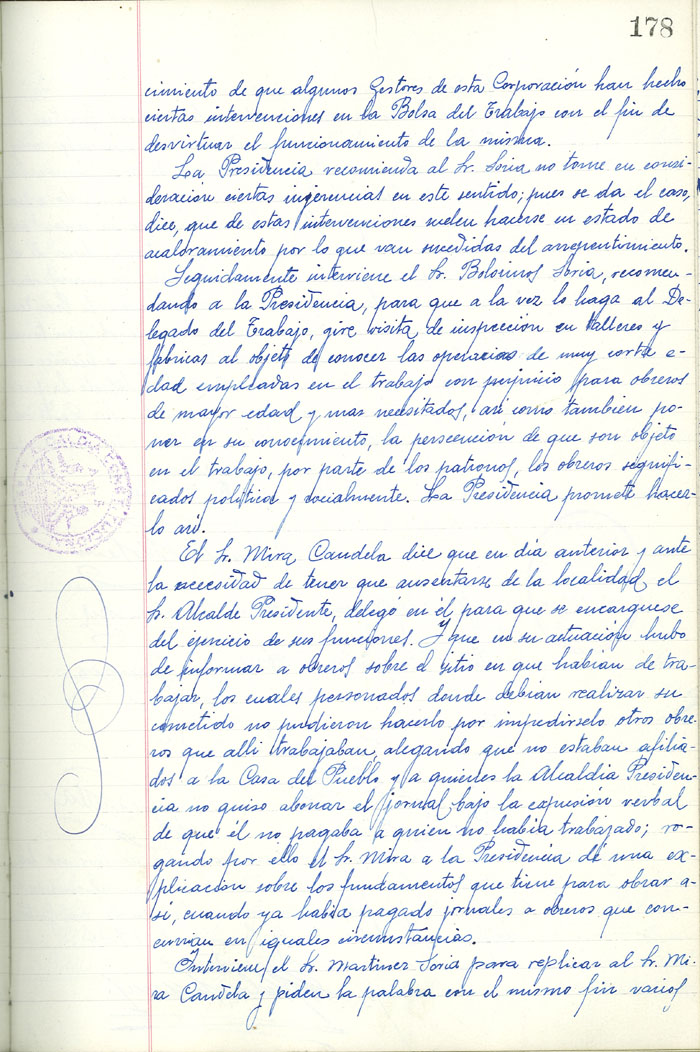 178
cimiento de que algunos Gestores de esta Corporación han hecho
ciertas intervenciones en la Bolsa del Trabajo con el fin de
desvirtuar el funcionamiento de la misma.
La Presidencia recomienda al Sr. Soria no tome en consi-
deración ciertas ingerencias en este sentido; pues se da el caso,
dice, que de estas intervenciones suelen hacerse en estado de
acaloramiento por lo que van sucedidas del arrepentimiento.
Seguidamente interviene el Sr. Bolsinos Soria, recomen-
dando a la Presidencia, para que a la vez lo haga al De-
legado del Trabajo, gire visita de inspección en talleres y
fábricas al objeto de conocer las operacias de muy corta e-
dad empleadas en el trabajo con perjuicio para obreros
de mayor edad y mas necesitados, asi como tambien po-
ner en su conocimiento, la persecución de que son objeto
en el trabajo, por parte de los patronos, los obreros signifi-
cados politica y socialmente. La Presidencia promete hacer-
lo asi.
El Sr. Mira Candela dice que en dia anterior y ante
la necesidad de tener que ausentarse de la localidad el
Sr. Alcalde Presidente, delegó en él para que se encargase
del ejercicio de sus funciones. Y que en su actuación hubo
de informar a obreros sobre el sitio en que habian de tra-
bajar, los cuales personados donde debian realizar su
cometido no pudieron hacerlo por impedirselo otros obre-
ros que alli trabajaban, alegando que no estaban afilia-
dos a la Casa del Pueblo y a quienes la Alcaldia Presiden-
cia no quiso abonar el jornal, bajo la expresión verbal
de que él no pagaba a quien no habia trabajado; ro-
gando por ello el Sr. Mira a la Presidencia dé una ex-
plicación sobre los fundamentos que tiene para obrar a-
si, cuando ya habia pagado jornales a obreros que con-
currian en iguales circunstancias.
Interviene el Sr. Martinez Soria para replicar al Sr. Mi-
ra Candela y piden la palabra con el mismo fin varios